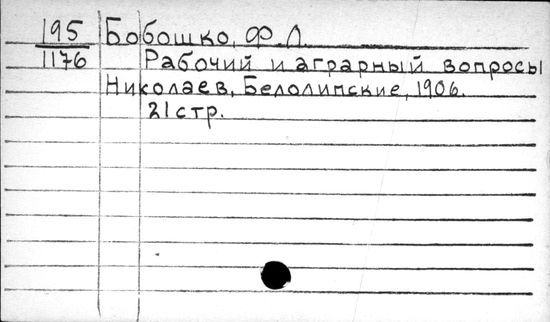 195 Бобошко, Ф. Л.
1176 Рабочий и аграрный вопросы
Николаев, Белолипские, 1906.
21 стр.